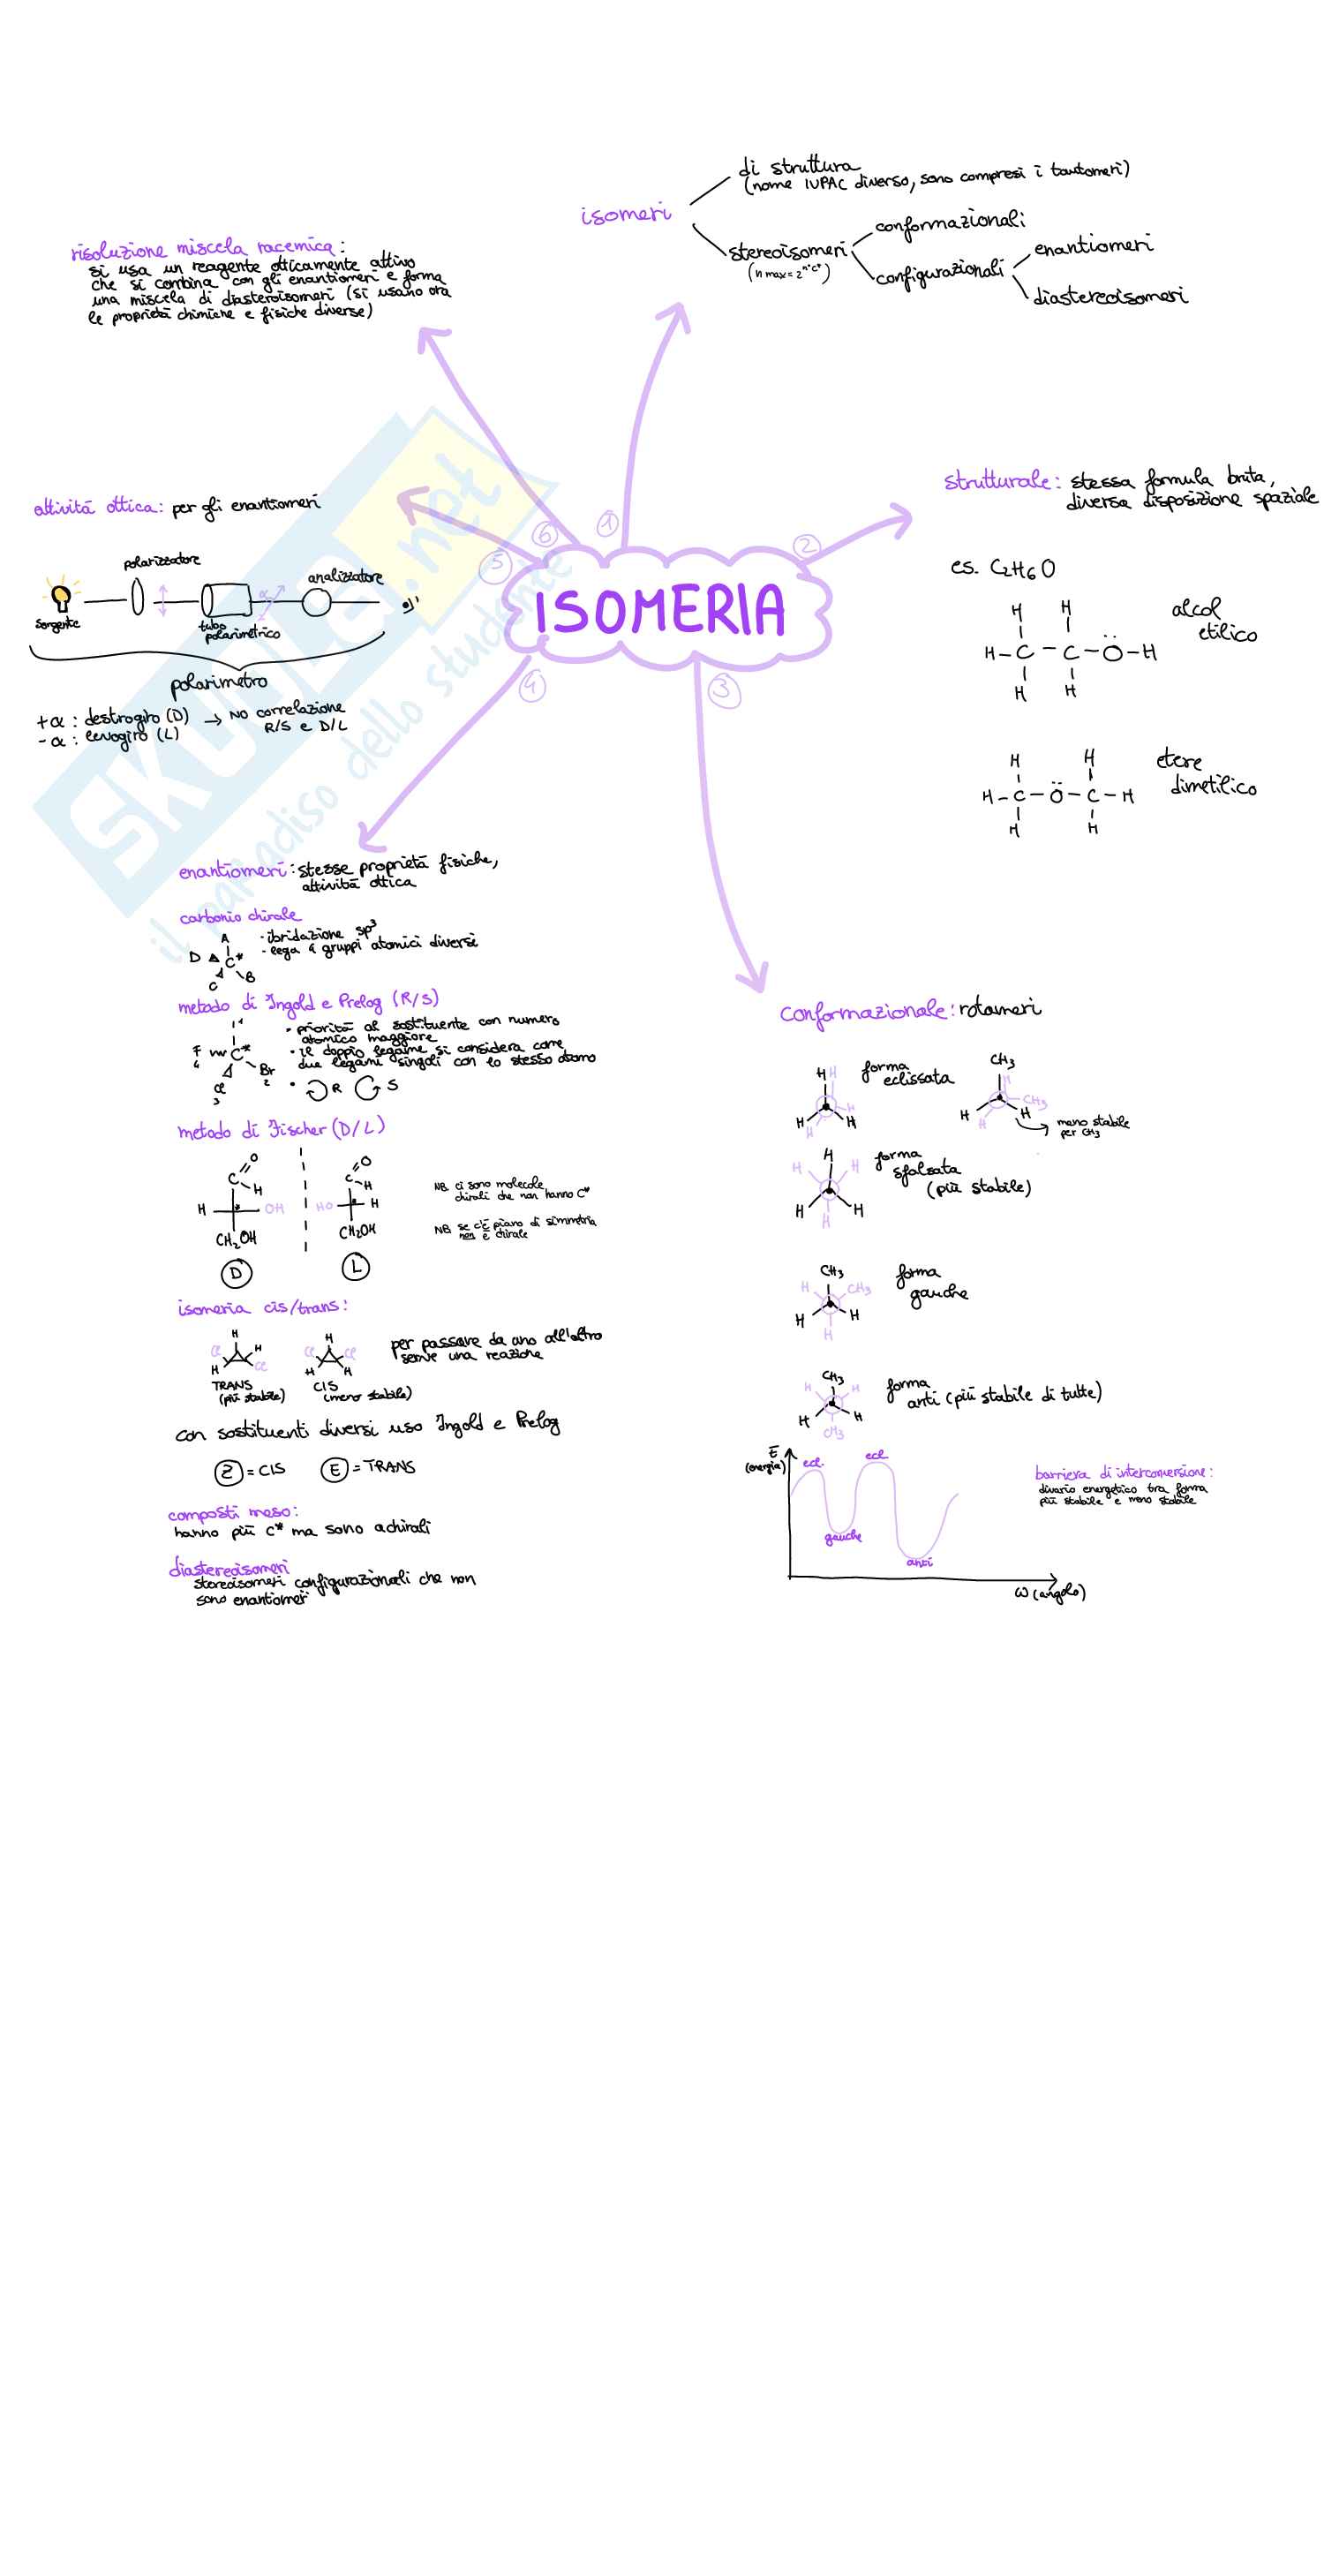 ISOMERIA
①
isomeri
di struttura
(nome IUPAC diverso, sono compresi i tautomeri)
stereoisomeri
(n max = 2^n°c*)
conformazionali
configurazionali
enantiomeri
diastereoisomeri
②
strutturale: stessa formula bruta,
diversa disposizione spaziale
es. C2H6O
H H
H - C - C - Ö - H
H H
alcol
etilico
H H
H - C - Ö - C - H
H H
etere
dimetilico
③
conformazionale: rotameri
H H
H H
H H
forma
eclissata
CH3
H
CH3
H H
H
meno stabile
per CH3
H
H H
H H
H
forma
sfalsata
(più stabile)
CH3
H CH3
H H
H
forma
gauche
CH3
H H
H H
CH3
forma
anti (più stabile di tutte)
E
(energia)
ecl.
ecl
gauche
anti
ω (angolo)
barriera di interconversione:
divario energetico tra forma
più stabile e meno stabile
④
enantiomeri: stesse proprietà fisiche,
attività ottica
carbonio chirale
A
D C* B
C
· ibridazione sp3
· lega 4 gruppi atomici diversi
metodo di Ingold e Prelog (R/S)
I 1
F C* Br
4 2
Cl
3
· priorità al sostituente con numero
atomico maggiore
· il doppio legame si considera come
due legami singoli con lo stesso atomo
· R S
metodo di Fischer (D/L)
O
C H
H OH
CH2OH
D
O
C H
HO H
CH2OH
L
NB. ci sono molecole
chirali che non hanno C*
NB. se c'è piano di simmetria
non è chirale
isomeria cis/trans:
H
Cl H
H Cl
TRANS
(più stabile)
H
Cl Cl
H H
CIS
(meno stabile)
per passare da uno all'altro
serve una reazione
con sostituenti diversi uso Ingold e Prelog
Z = CIS E = TRANS
composti meso:
hanno più C* ma sono achirali
diastereoisomeri
stereoisomeri configurazionali che non
sono enantiomeri
⑤
attività ottica: per gli enantiomeri
sorgente
polarizzatore
tubo
polarimetrico
α
analizzatore
polarimetro
+α : destrogiro (D) → NO correlazione
-α : levogiro (L) R/S e D/L
⑥
risoluzione miscela racemica:
si usa un reagente otticamente attivo
che si combina con gli enantiomeri e forma
una miscela di diasteroisomeri (si usano ora
le proprietà chimiche e fisiche diverse)
SKUOLA.net
il paradiso dello studente